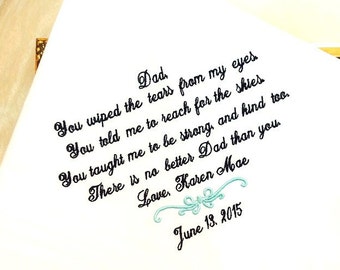 Dad,
You wiped the tears from my eyes.
You told me to reach for the skies.
You taught me to be strong, and kind too.
There is no better Dad than you.
Love, Karen Mae
June 13, 2015